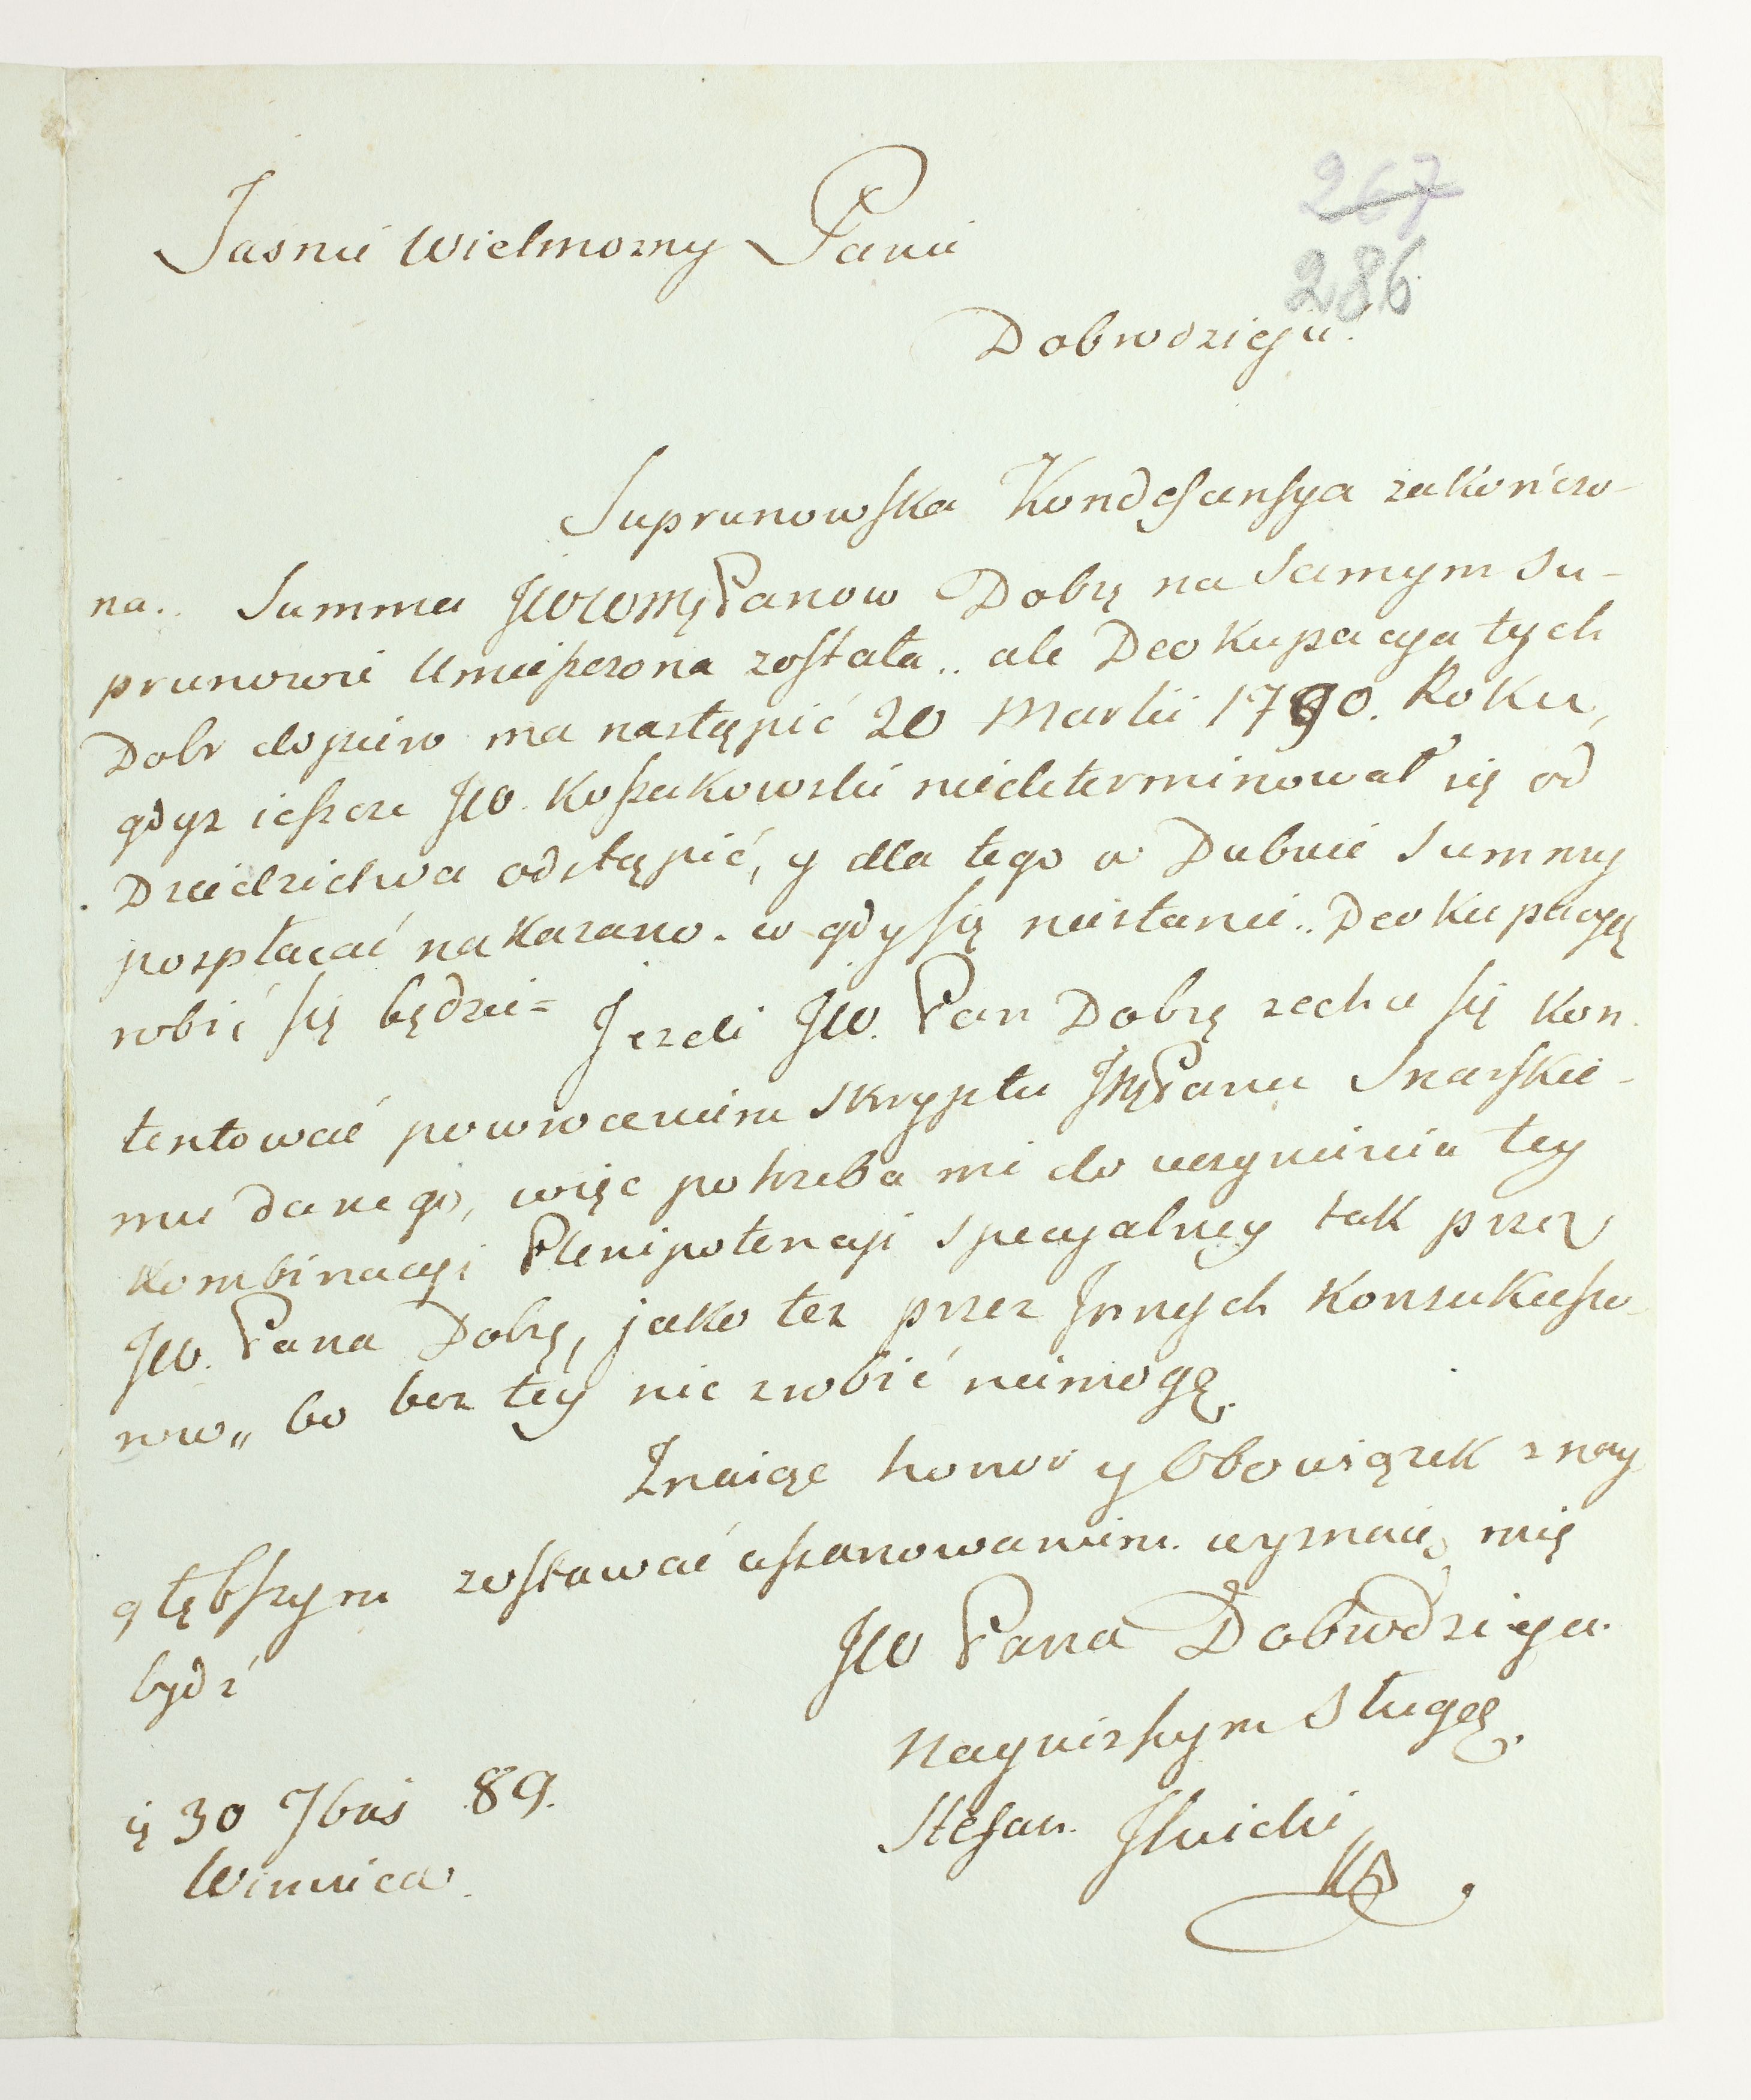 267
286
Jasnie Wielmozny Panie
Dobrodzieju.
Suprunowska Kondesansya zakończo-
na.. Summa JWWMę Panow Dobrę na samym Su-
prunowie Umieszczona została.. ale Deokupacya tych
Dobr dopiero ma nastąpić 20 Martii 1790. Roku,
gdyz ieszcze JW. Koszakowski niedeterminował się od
Dziedzictwa odstąpić, y dla tego w Dubnie Summy
pospłacać nakazano. w gdy się niestanie.. Deokupacyą
robić się będzie= Jezeli JW. Pan Dobrę zechce się kon.
tentować powroceniem skryptu JMę Panu Snarskie-
mu danego, więc potrzeba mi do uczynienia tey
kombinacyi Plenipotencyi specyalney tak przez
JW. Pana Dobrę, jako tez przez Jnnych Konsukcesso-
row„ bo bez tey nic zrobić niemogę.
Znaiąc honor y Obowiązek z nay
głębszym zostawać uszanowaniem. wyznaię mię
bydź
JW Pana Dobrodzieja.
Nayniższym Sługą.
Stefan
d 30 7bris 89.
Winnica.